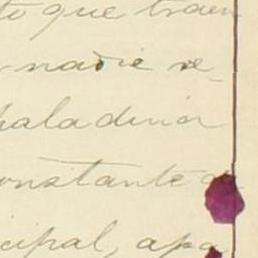 to que traen
nadie se_
paladina
onstante
cipal, apa